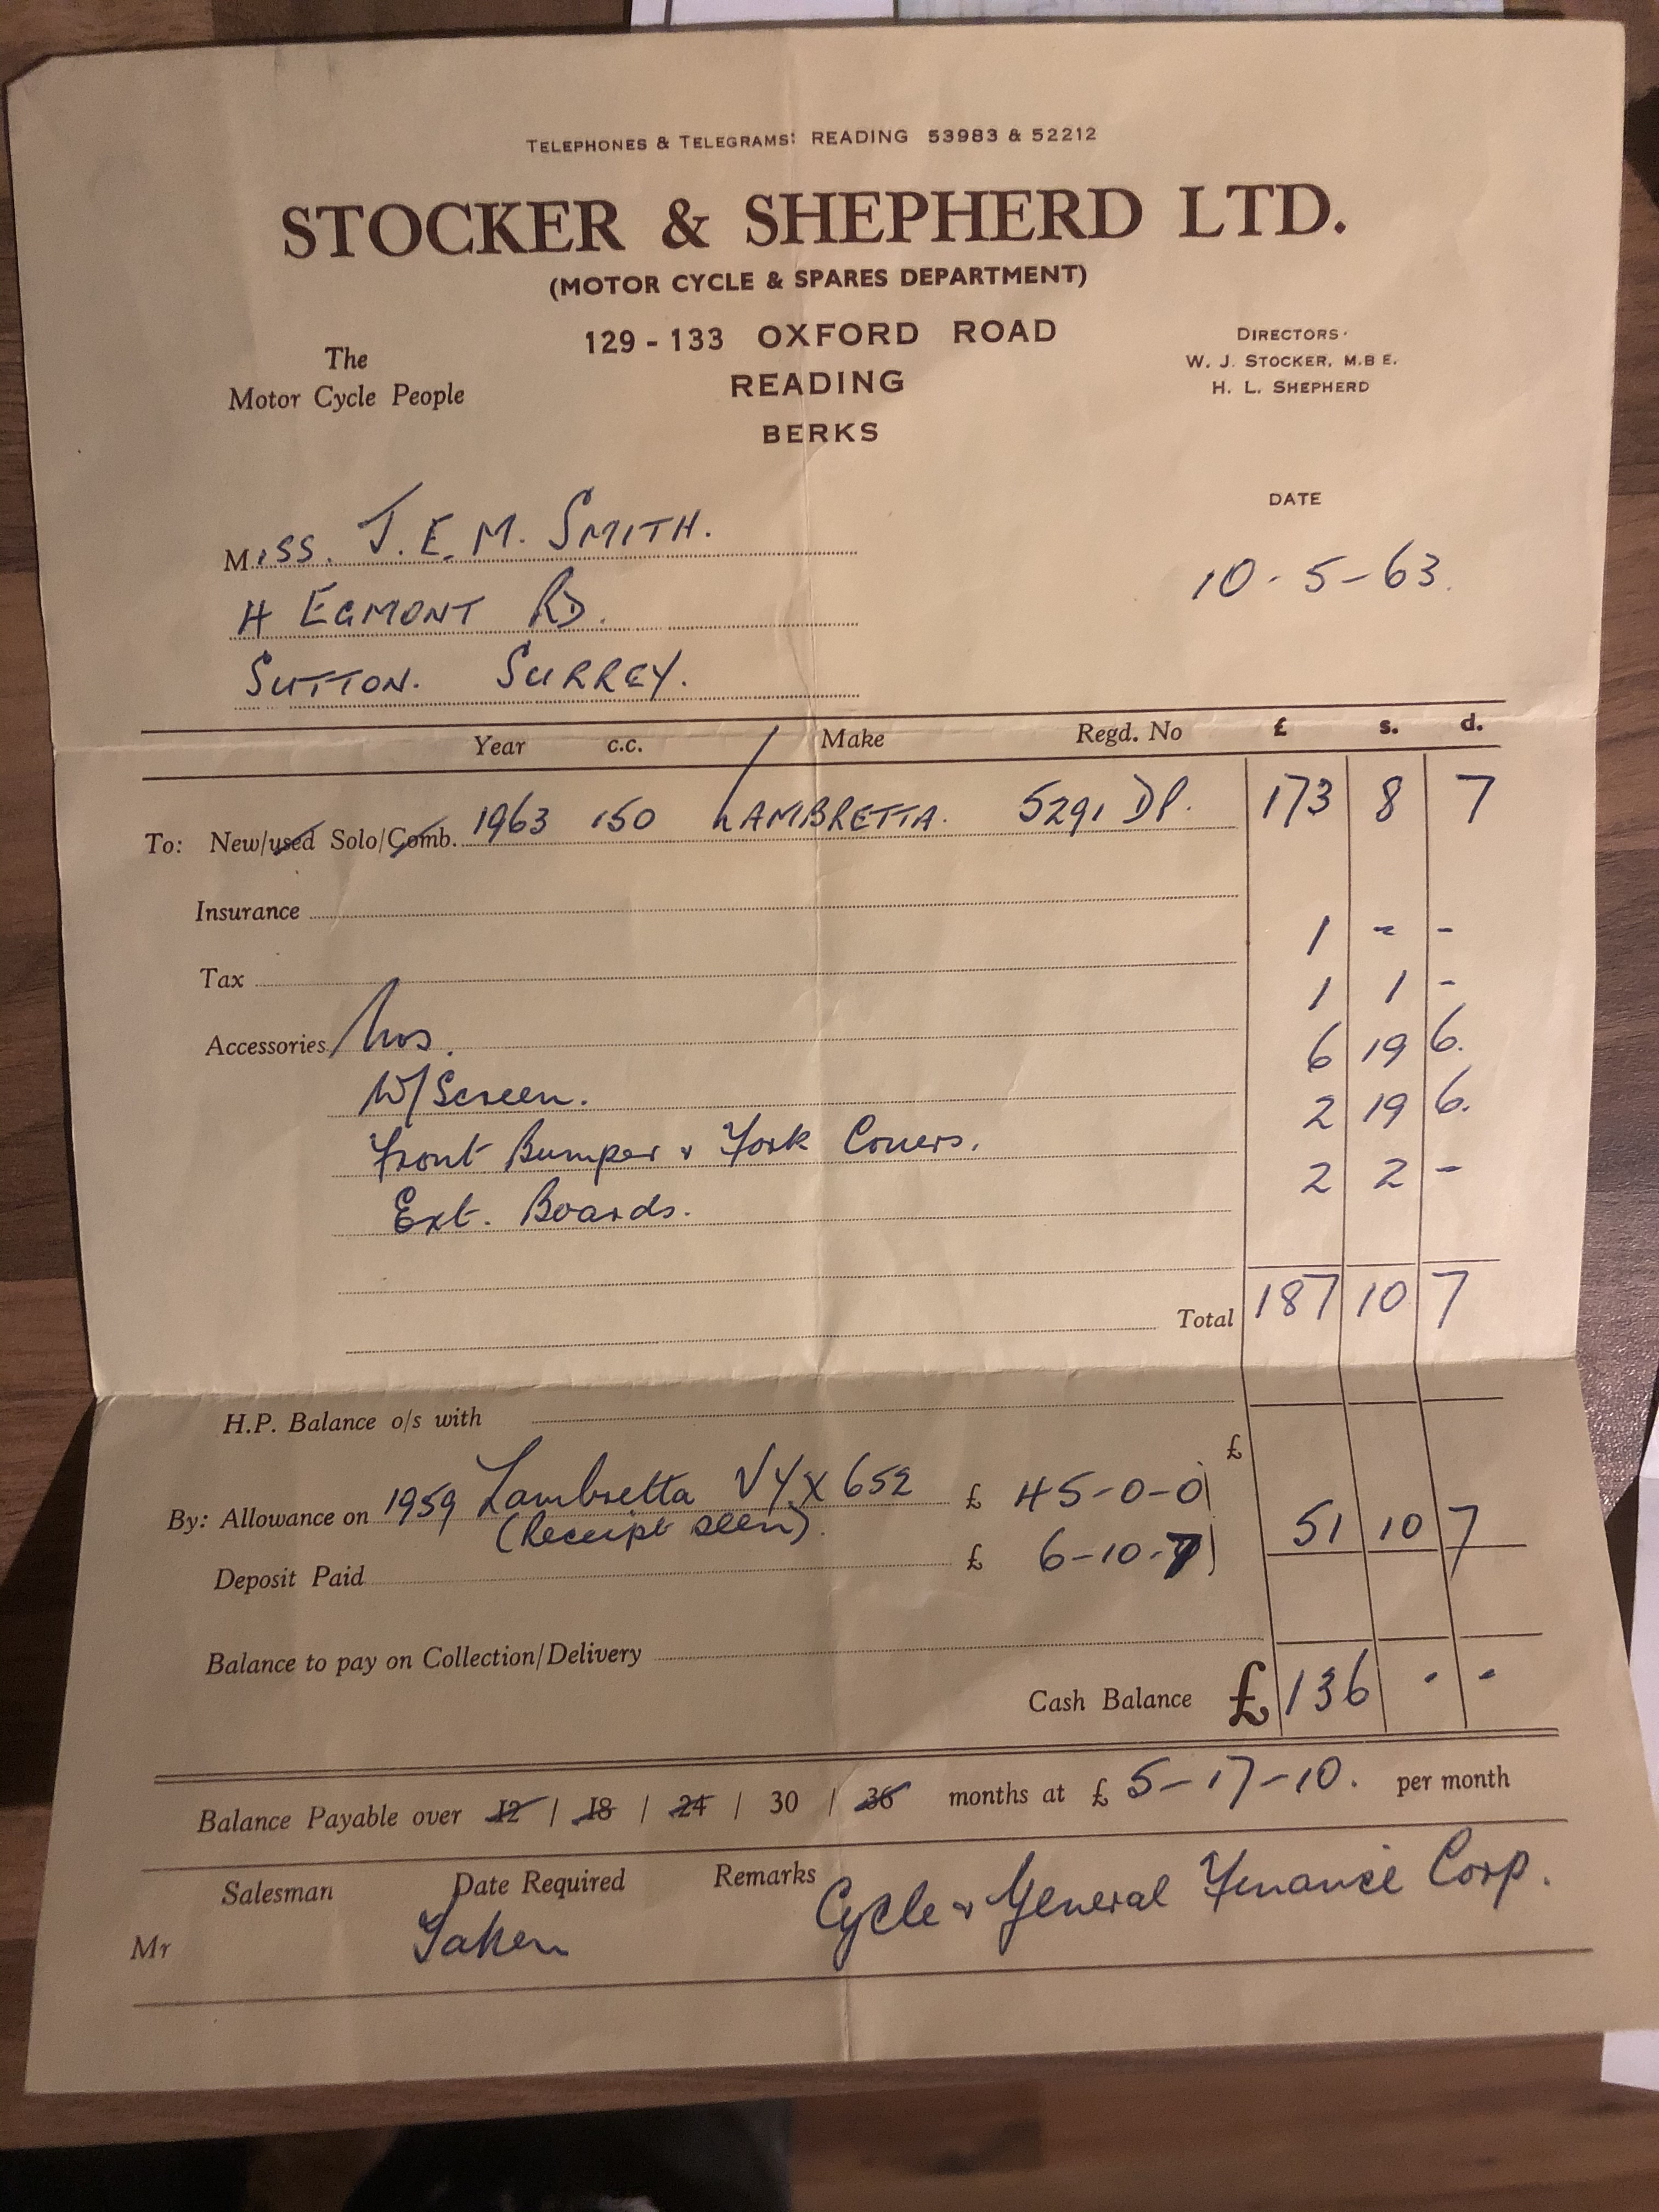 TELEPHONES & TELEGRAMS: READING 53983 & 52212
STOCKER & SHEPHERD LTD.
(MOTOR CYCLE & SPARES DEPARTMENT)
The
Motor Cycle People
129 - 133 OXFORD ROAD
READING
BERKS
DIRECTORS.
W. J. STOCKER, M.B E.
H. L. SHEPHERD
DATE
10-5-63.
MISS. J. E. M. SMITH.
4 EGMONT RD.
SUTTON. SURREY.
Year c.c. Make Regd. No £ s. d.
To: New/used Solo/Comb. 1963 150 LAMBRETTA. 5291 DP. 173 8 7
Insurance
1 - -
Tax
1 1 -
Accessories 6 19 6.
W/Screen. 2 19 6.
Front Bumper & Fork Covers. 2 2 -
Ext. Boards.
Total 187 10 7
H.P. Balance o/s with
£
By: Allowance on 1959 Lambretta VYX 652 £ 45-0-0
(Receipt seen). 51 10 7
Deposit Paid £ 6-10-7
Balance to pay on Collection/Delivery
Cash Balance £ 136 - -
Balance Payable over 12 / 18 / 24 / 30 / 36 months at £ 5-17-10. per month
Salesman Date Required Remarks Cycle & General Finance Corp.
Mr Taken